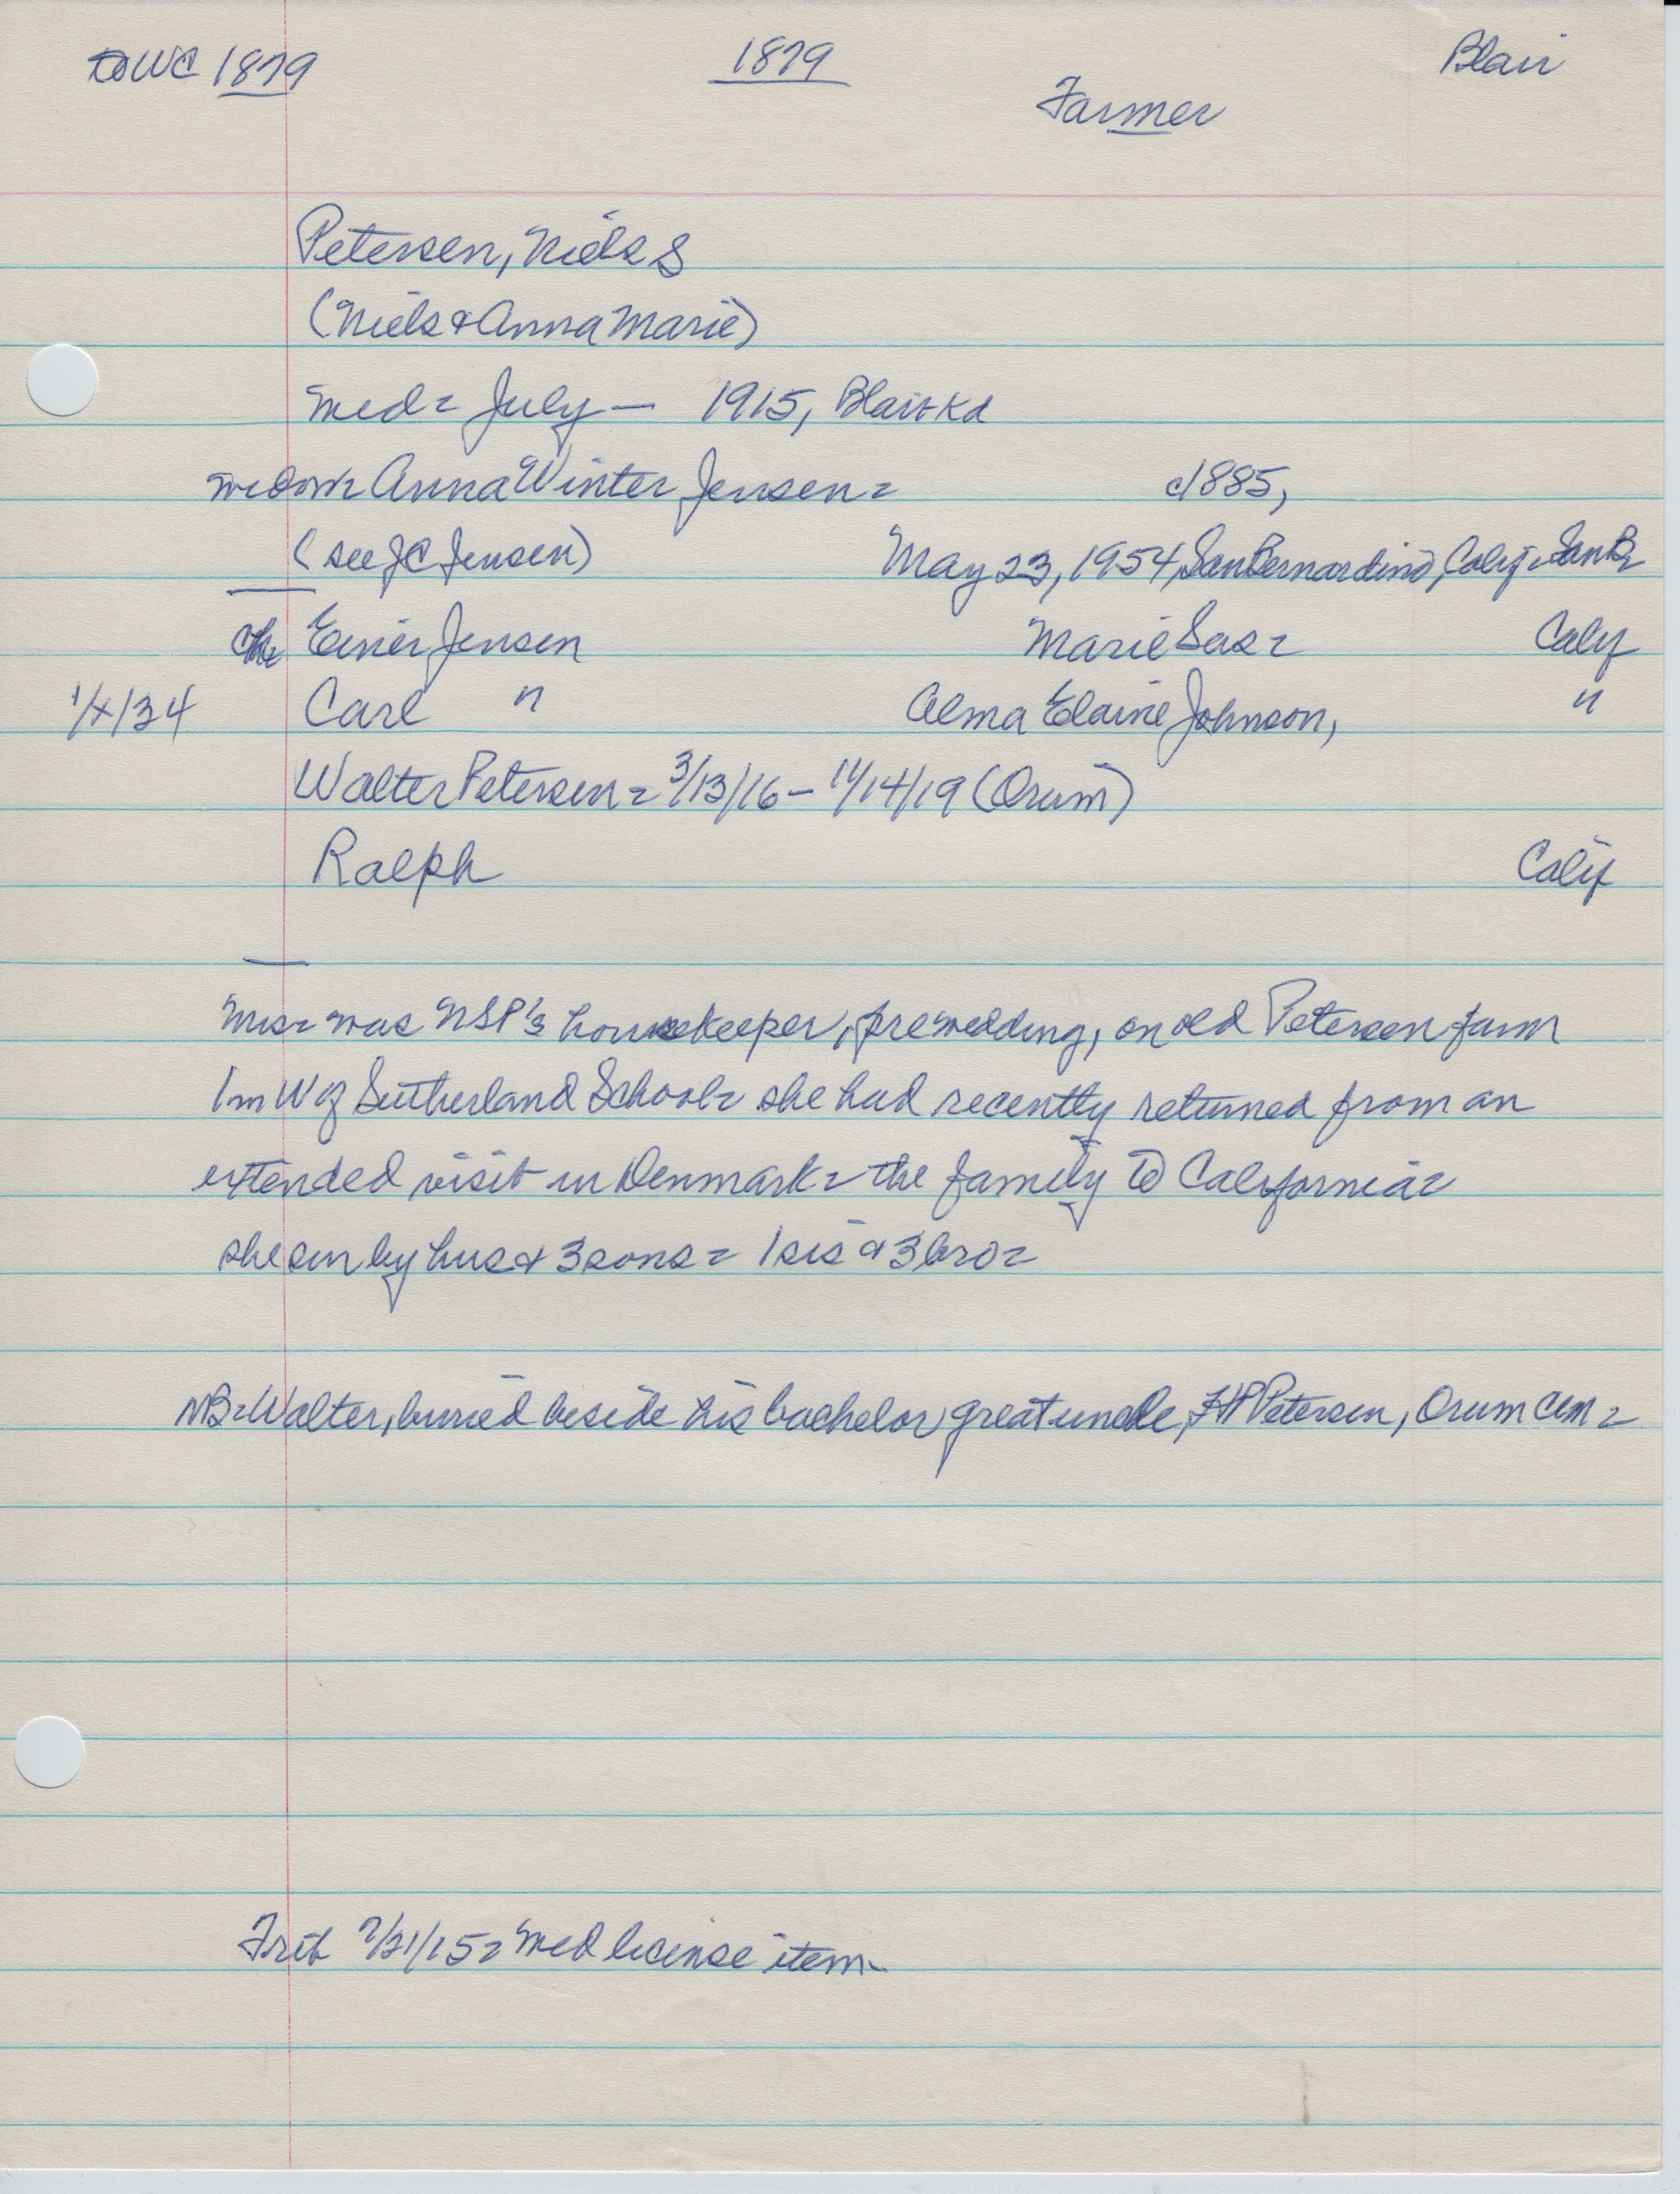 DWC 1879 1879 Blair
Farmer
Petersen, Niels S
(Niels & Anna Marie)
med = July — 1915, Blair
widow = Anna Winter Jensen = c1885,
(see JC Jensen) May 23, 1954, San Bernardino, Calif = San B =
ch = Einer Jensen Marie Sas = Calif
1/x/34 Carl " Alma Elaine Johnson, "
Walter Petersen = 3/13/16 - 11/14/19 (Orum)
Ralph Calif
Mrs = was NSP's housekeeper, prewedding, on old Petersen farm
1m W of Sutherland School = she had recently returned from an
extended visit in Denmark = the family to California =
she sur by hus & 3 sons = 1 sis & 3 bro =
NB = Walter, buried beside his bachelor great uncle, HP Petersen, Orum Cem =
Trib 7/21/15 = med license item